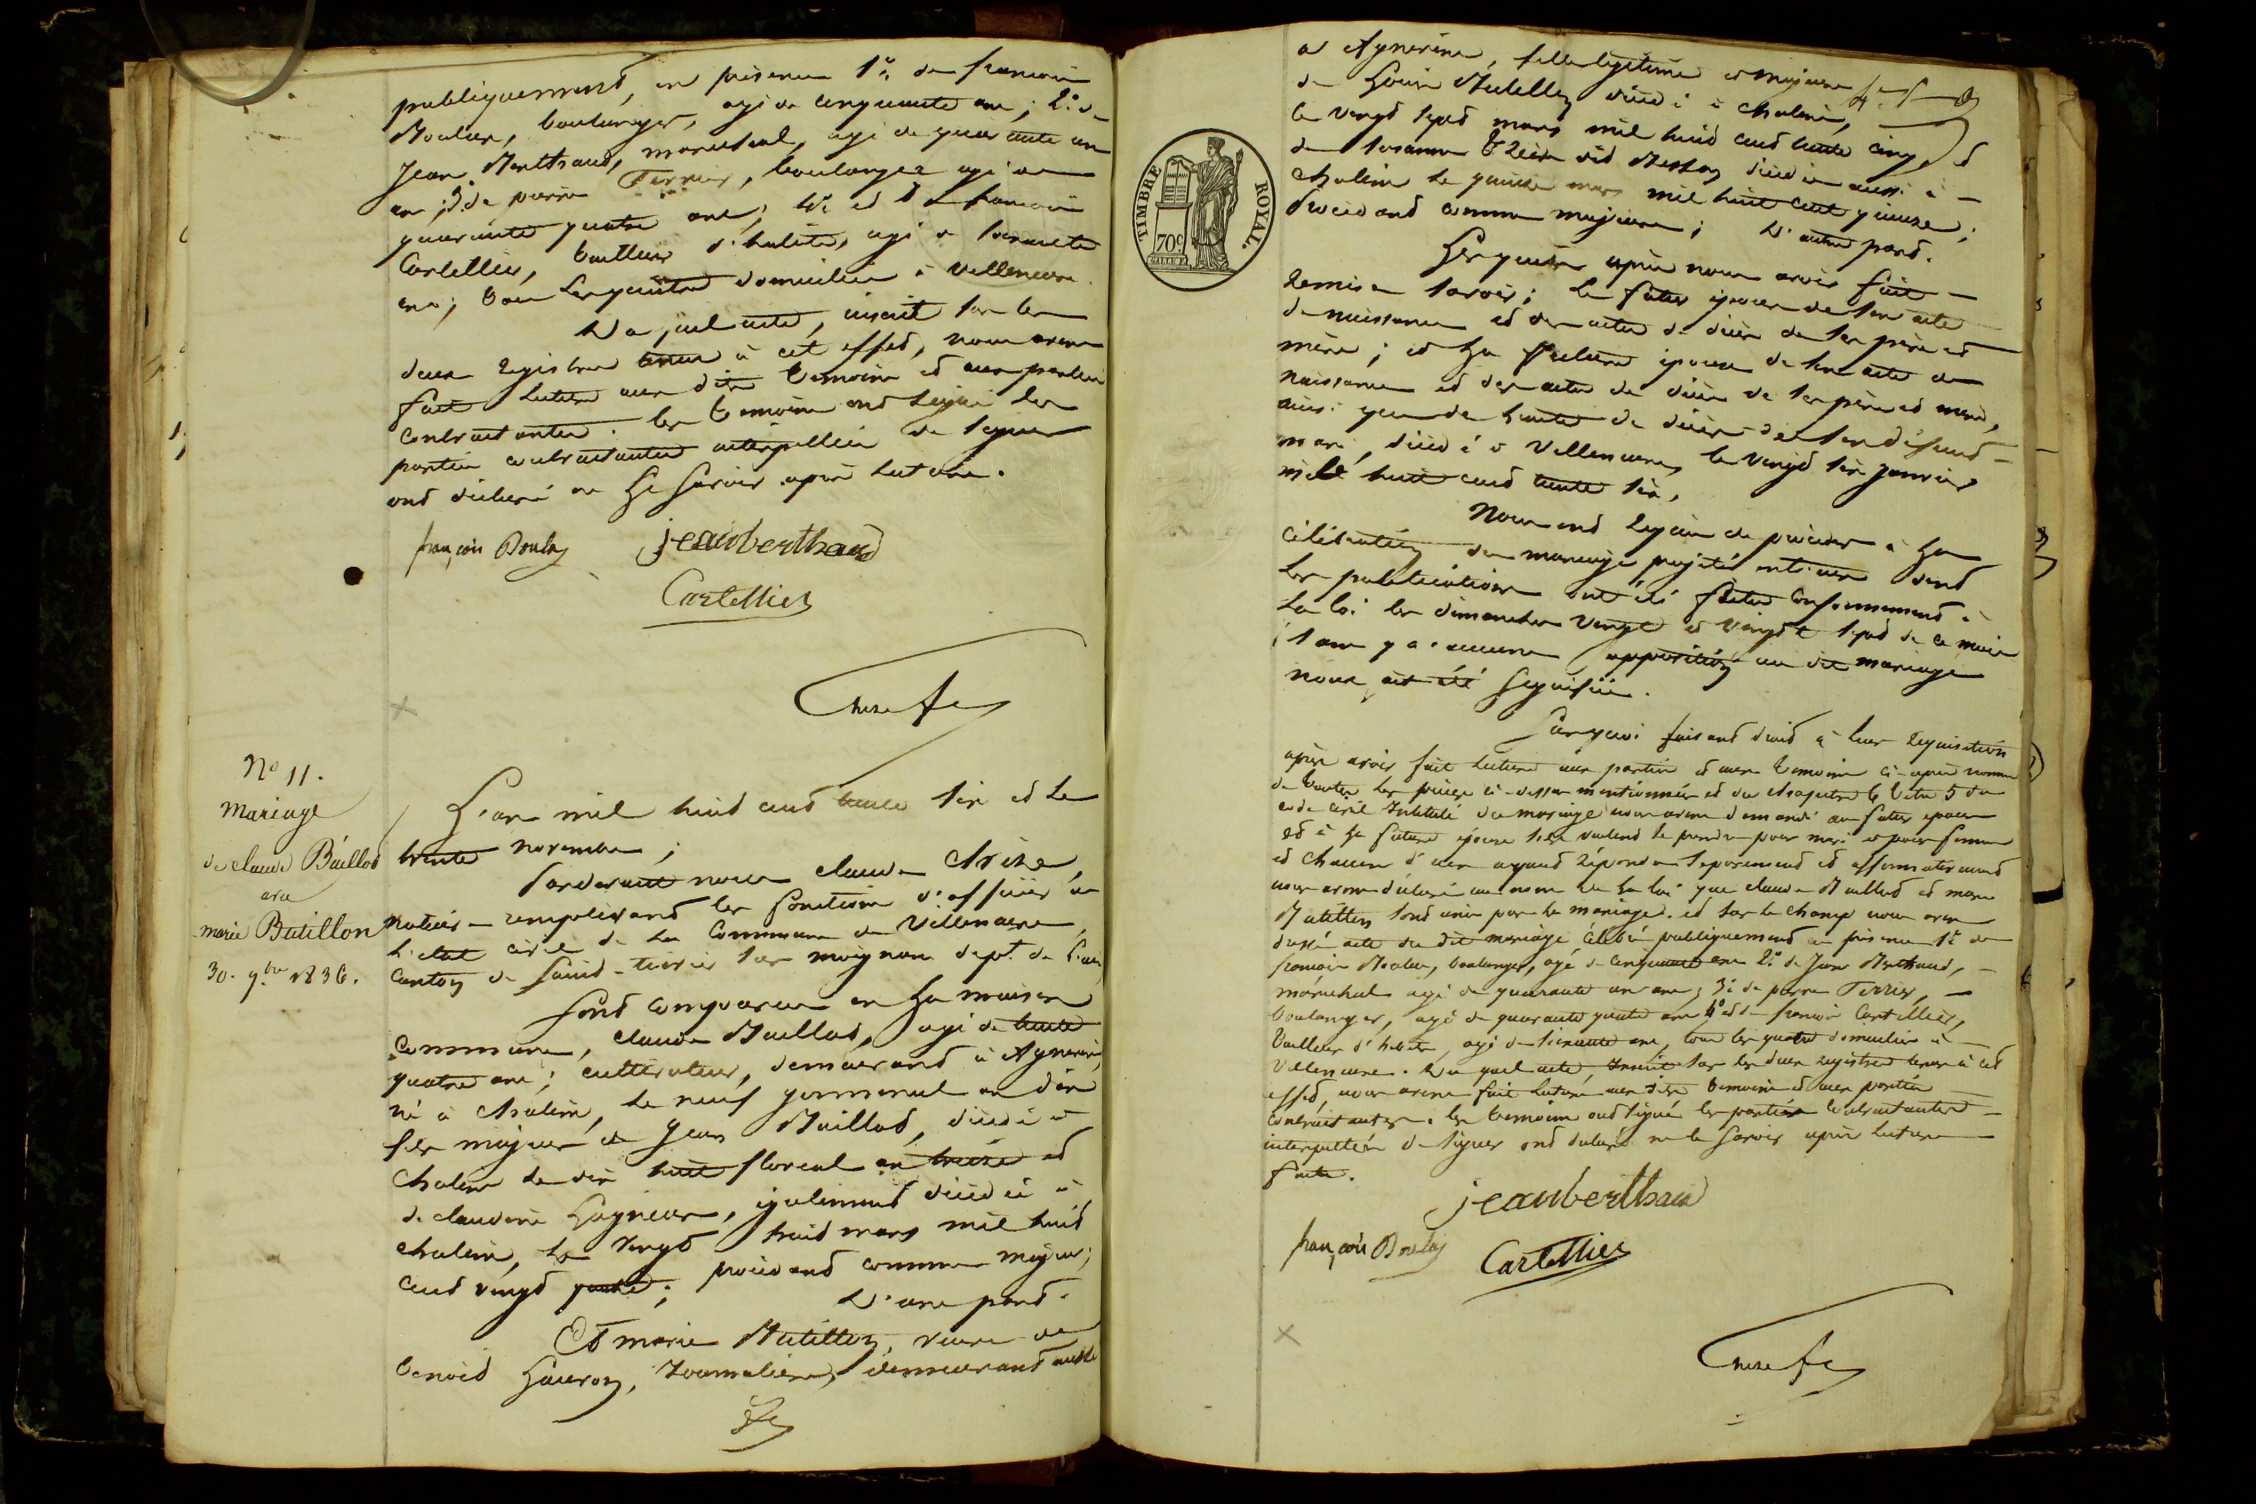 publiquement, en présence 1º de françois
Boulas, boulanger, agé de cinquante ans; 2º de
Jean Berthaud, marechal, agé de quarante un
ans; 3º de pierre Terrier, boulanger agé de
quarante quatre ans; 4º et de françois
Cartellier, tailleur d'habits, agé de soixante
ans; tous les quatre domiciliés à Villeneuve.
Du quel acte, inscrit sur les
deux registres tenus à cet effet, nous avons
fait lecture aux dits temoins et aux parties
contractantes. les temoins ont signé les
parties contractantes interpellées de signer
ont déclaré ne le savoir après lecture.
françois Boulas
jean berthaud
Cartellier
Nº 11.
Mariage
de claude Baillod
avec
marie Butillon
30. 9.bre 1836.
L'an mil huit cent trente six et le
trente novembre;
Pardevant nous claude
notaire remplissant les fonctions d'officier de
l'etat civil de la Commune de Villeneuve,
Canton de Saint-trivier sur moignans dept. de l'ain,
Sont comparus en la maison
Commune, claude Baillod, agé de trente
quatre ans; cultivateur, demeurant à Agnereins
né à Chaleins, le neuf germinal an dix
fils majeur de Jean Baillod, décédé à
Chaleins le dix huit floréal an treize et
de claudine Lagneux, également décédée à
chaleins, le vingt huit mars mil huit
cent vingt quatre; procédant comme majeur;
D'une part.
Et marie Butillon, veuve de
benoid Gauron, Journalière, demeurant aussi
à Agnereins, fille légitime et majeure
de Louis Butillon décédé à Chaleins,
le vingt sept mars mil huit cent trente cinq et
de Susanne décédée aussi à
Chaleins le quinze mars mil huit cent quinze;
Procédant comme majeure; D'autre part.
TIMBRE ROYAL.
70c
Lesquels après nous avoir fait
remise savoir; le futur époux de son acte
de naissance et des actes de décès de ses père et
mère; et la future épouse de son acte de
naissance et des actes de décès de ses père et mère,
ainsi que de l'acte de décès de son défunt
mari, décédé à Villeneuve, le vingt six janvier
mil huit cent trente six,
Nous ont requis de procéder à la
célébration du mariage projeté entr'eux dont
les publications ont été faites conformément à
la loi les dimanches vingt et vingt sept de ce mois
sans y a aucune opposition au dit mariage
nous ait été signifiée.
Parquoi faisant droit à leur requisition
après avoir fait lecture aux parties et aux temoins ci-après nommés
de toutes les pièces ci-dessus mentionnées et du chapitre 6 titre 5 du
code civil Intitulé du mariage nous avons demandé au futur époux
et à la future épouse s'ils veulent se prendre pour mari et pour femme
et chacun d'eux ayant répondu séparement et affirmativement
nous avons déclaré au nom de la loi que claude Baillod et marie
Butillon sont unis par le mariage. et sur le champ nous avons
dressé acte du dit mariage célébré publiquement en présence 1º de
françois Boulas, boulanger, agé de cinquante ans 2º de Jean Berthaud,
maréchal agé de quarante un ans; 3º de pierre Terrier,
boulanger, agé de quarante quatre ans 4º et de françois Cartellier,
tailleur d'habits, agé de soixante ans, tous les quatre domiciliés à
Villeneuve. Du quel acte, Inscrit sur les deux registres tenus à cet
effet, nous avons fait lecture aux dits temoins et aux parties
contractantes. les temoins ont signé les parties contractantes
interpellées de signer ont déclaré ne le savoir après lecture
faite.
jean berthaud
françois Boulas
Cartellier